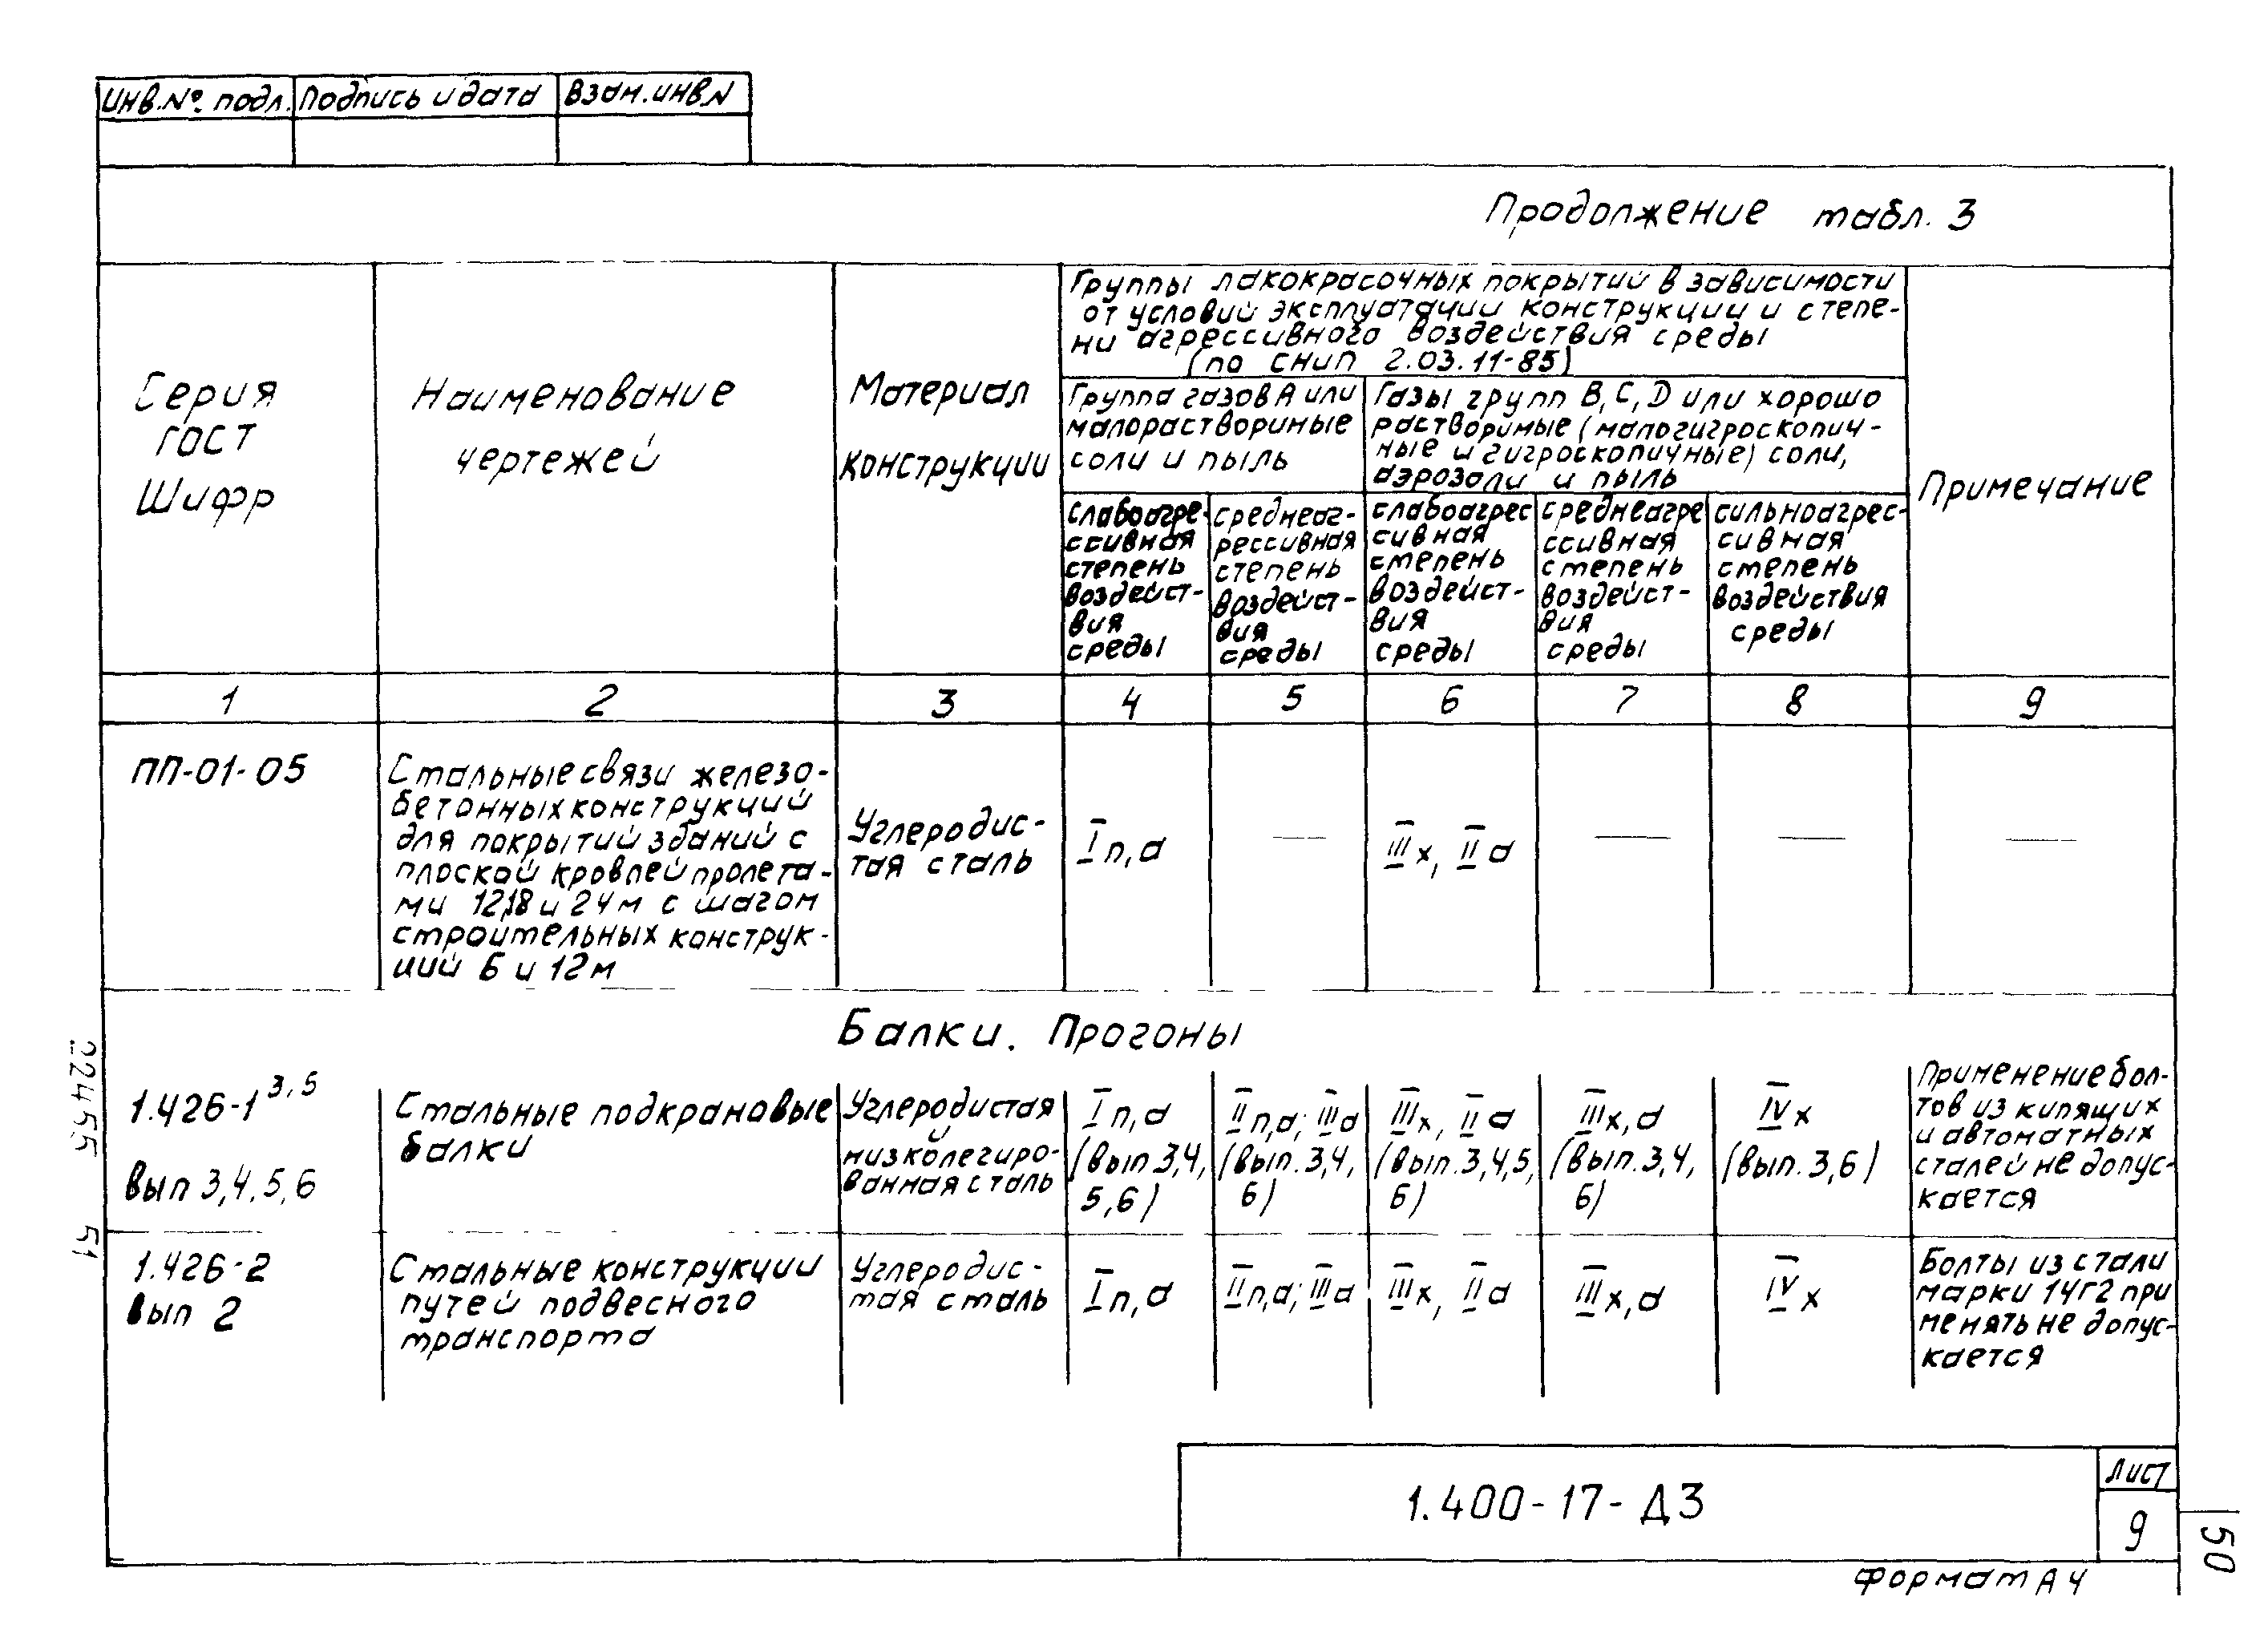 Инв.№ подл. Подпись и дата Взам.инв.N
Продолжение табл. 3
Серия
ГОСТ
Шифр
Наименование
чертежей
Материал
конструкции
Группы лакокрасочных покрытий в зависимости
от условий эксплуатации конструкции и степе-
ни агрессивного воздействия среды
(по СНиП 2.03.11-85)
Группа газов А или
малорастворимые
соли и пыль
Газы групп В, С, D или хорошо
растворимые (малогигроскопич-
ные и гигроскопичные) соли,
аэрозоли и пыль
слабоагре-
ссивная
степень
воздейст-
вия
среды
среднеаг-
рессивная
степень
воздейст-
вия
среды
слабоагрес
сивная
степень
воздейст-
вия
среды
среднеагре
ссивная
степень
воздейст-
вия
среды
сильноагрес-
сивная
степень
воздействия
среды
Примечание
1 2 3 4 5 6 7 8 9
ПП-01-05
Стальные связи железо-
бетонных конструкций
для покрытий зданий с
плоской кровлей пролета-
ми 12,18 и 24м с шагом
строительных конструк-
ций 6 и 12м
Углеродис-
тая сталь
I п,а
—
III х, II а
—
—
—
Балки. Прогоны
1.426-1 3,5
вып 3,4,5,6
Стальные подкрановые
балки
Углеродистая
и
низколегиро-
ванная сталь
I п,а
(вып.3,4,
5,6)
II п,а; III а
(вып.3,4,
6)
III х, II а
(вып.3,4,5,
6)
III х,а
(вып.3,4,
6)
IV х
(вып.3,6)
Применение бол-
тов из кипящих
и автоматных
сталей не допус-
кается
1.426-2
вып 2
Стальные конструкции
путей подвесного
транспорта
Углеродис-
тая сталь
I п,а
II п,а; III а
III х, II а
III х,а
IV х
Болты из стали
марки 14Г2 при
менять не допус-
кается
22455 51
1.400-17-Д3
Лист
9
50
Формат А4